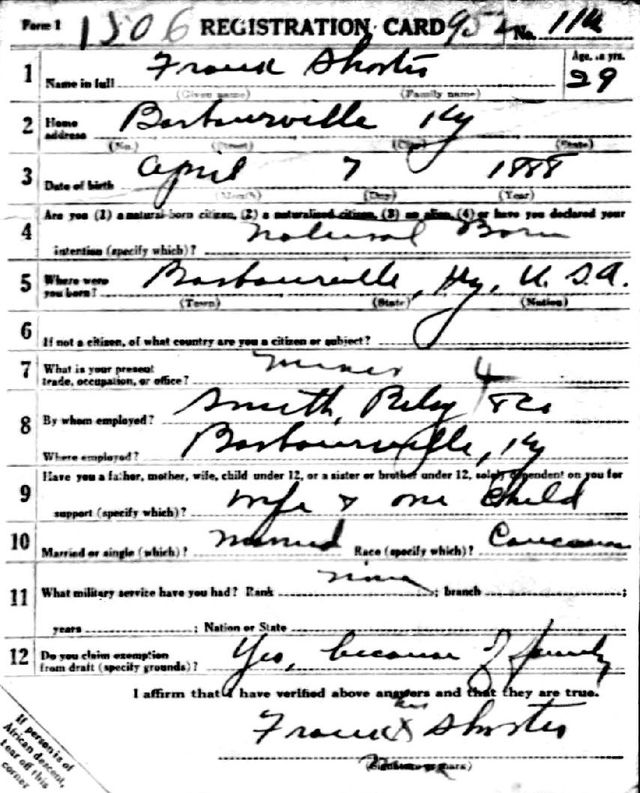 Form 1 1506 REGISTRATION CARD 954 No. 114
1 Name in full Frank Shorter Age, in yrs. 29
(Given name) (Family name)
2 Home address Barbourville Ky
(No.) (Street) (City) (State)
3 Date of birth April 7 1888
(Month) (Day) (Year)
4 Are you (1) a natural-born citizen, (2) a naturalized citizen, (3) an alien, (4) or have you declared your
intention (specify which)? Natural Born
5 Where were you born? Barbourville, Ky, U.S.A.
(Town) (State) (Nation)
6 If not a citizen, of what country are you a citizen or subject?
7 What is your present trade, occupation, or office? Miner 4
8 By whom employed? Smith, & Co
Where employed? Barbourville, Ky
9 Have you a father, mother, wife, child under 12, or a sister or brother under 12, solely dependent on you for
support (specify which)? Wife & one Child
10 Married or single (which)? Married Race (specify which)? Caucasian
11 What military service have you had? Rank None ; branch ;
years ; Nation or State
12 Do you claim exemption from draft (specify grounds)? Yes, because of family
I affirm that I have verified above answers and that they are true.
his
Frank X Shorter
mark
(Signature or mark)
If person is of
African descent,
tear off this
corner